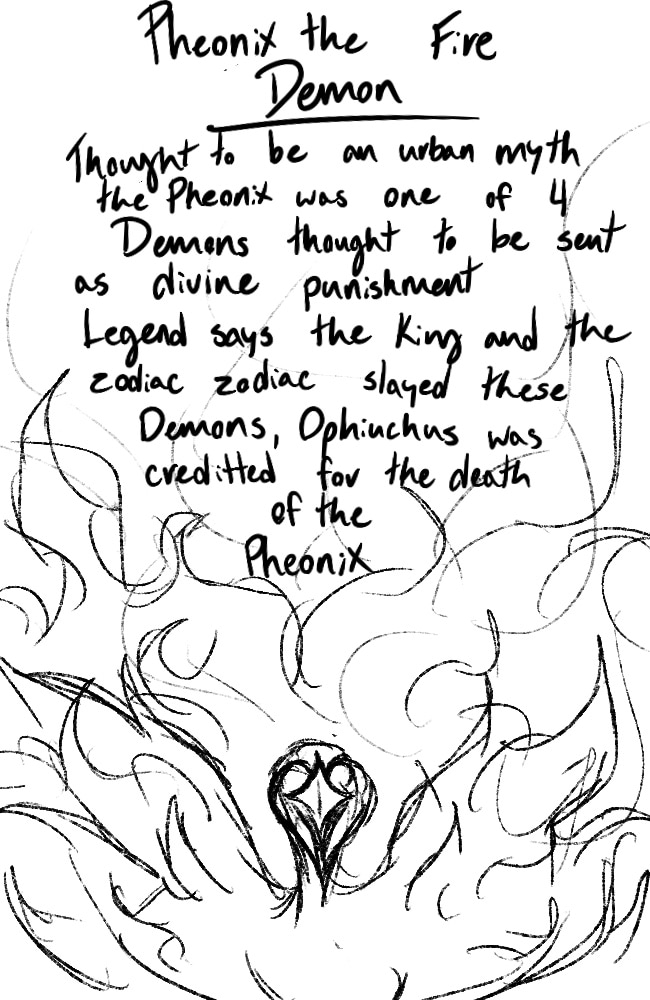 Pheonix the Fire
Demon
Thought to be an urban myth
the Pheonix was one of 4
Demons thought to be sent
as divine punishment
Legend says the King and the
zodiac zodiac slayed these
Demons, Ophiuchus was
creditted for the death
of the
Pheonix